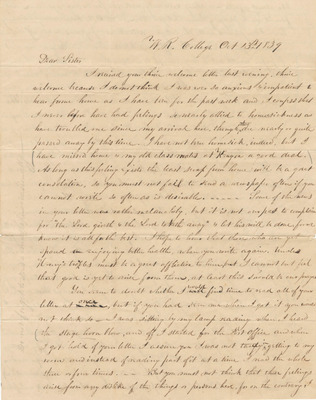 W. R. College Oct 13th 1839
Dear Sister
I received you thrice welcome letter last evening, thrice
welcome because I do not think I was ever so anxious & impatient to
hear from home as I have been for the past week and I confess that
I never before had feelings so nearly allied to homesickness as
have troubled me since my arrival here though they are nearly or quite
passed away by this time. I have not been homesick, indeed, but I
have missed home & my old class mates at a good deal.
As long as this feeling lasts the least scrap from home will be a great
consolation so you must not fail to send a newspaper often if you
cannot write so often as is desirable. Some of the news
in your letter was rather melancholy, but it is not our part to complain
for "the Lord giveth & the Lord taketh away" & let his will be done for so
it will be for the best. I hope to hear that
is enjoying better health when you write again
must be a great affliction to him but I cannot but feel
that good is yet to arise from them, at least this should be our prayer.
You seem to doubt whether I would find time to read all of your
letter at once but if you had seen me when I got it you would
not think so. I was sitting by my lamp reading when I heard
the stage horn blow, and off I started for the Post office, and when
I got hold of your letter I assure you I was not long getting to my
room and instead of reading part of it at a time I read the whole
three or four times. But you must not think that these feelings
arise from any dislike of the things or persons here, for on the contrary I